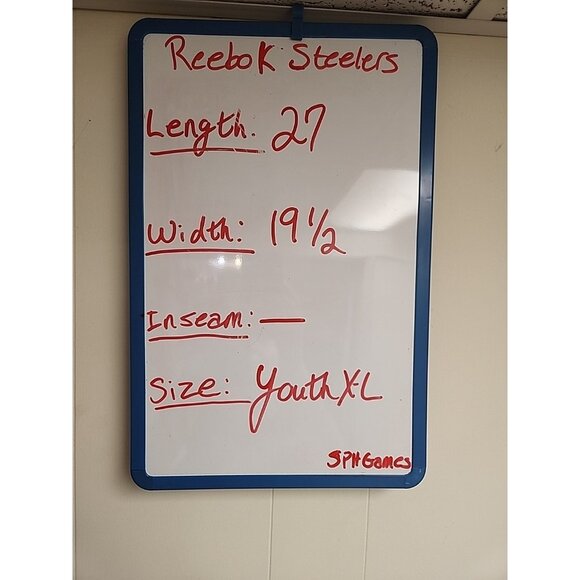 Reebok Steelers
Length: 27
Width: 19 1/2
Inseam: —
Size: Youth X-L
SPHGames